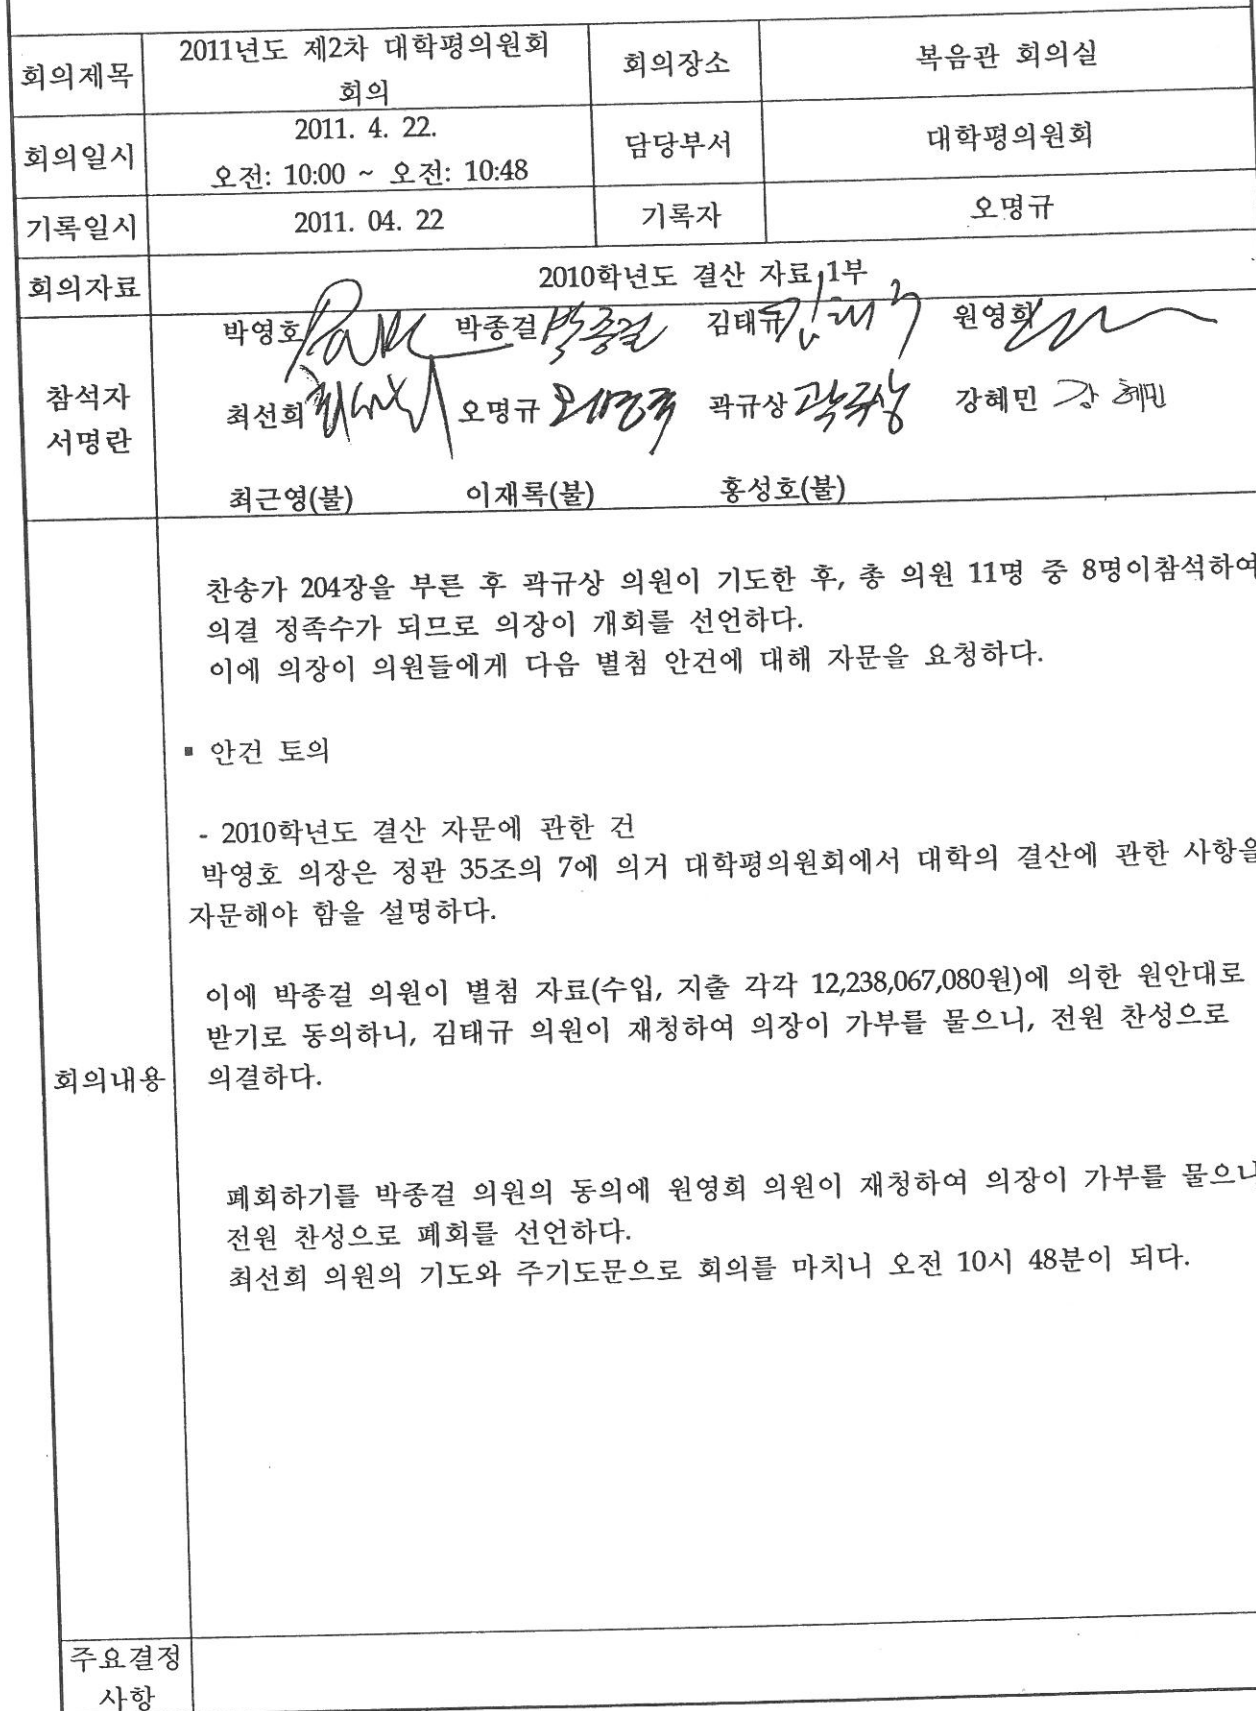 회의제목 2011년도 제2차 대학평의원회 회의 회의장소 복음관 회의실
회의일시 2011. 4. 22. 오전: 10:00 ~ 오전: 10:48 담당부서 대학평의원회
기록일시 2011. 04. 22 기록자 오명규
회의자료 2010학년도 결산 자료 1부
참석자 서명란
박영호 박종걸 박종걸 김태규 김태규 원영희
최선희 오명규 오명규 곽규상 곽규상 강혜민 강혜민
최근영(불) 이재록(불) 홍성호(불)
회의내용
찬송가 204장을 부른 후 곽규상 의원이 기도한 후, 총 의원 11명 중 8명이참석하여
의결 정족수가 되므로 의장이 개회를 선언하다.
이에 의장이 의원들에게 다음 별첨 안건에 대해 자문을 요청하다.
▪ 안건 토의
- 2010학년도 결산 자문에 관한 건
박영호 의장은 정관 35조의 7에 의거 대학평의원회에서 대학의 결산에 관한 사항을
자문해야 함을 설명하다.
이에 박종걸 의원이 별첨 자료(수입, 지출 각각 12,238,067,080원)에 의한 원안대로
받기로 동의하니, 김태규 의원이 재청하여 의장이 가부를 물으니, 전원 찬성으로
의결하다.
폐회하기를 박종걸 의원의 동의에 원영희 의원이 재청하여 의장이 가부를 물으니
전원 찬성으로 폐회를 선언하다.
최선희 의원의 기도와 주기도문으로 회의를 마치니 오전 10시 48분이 되다.
주요결정
사항